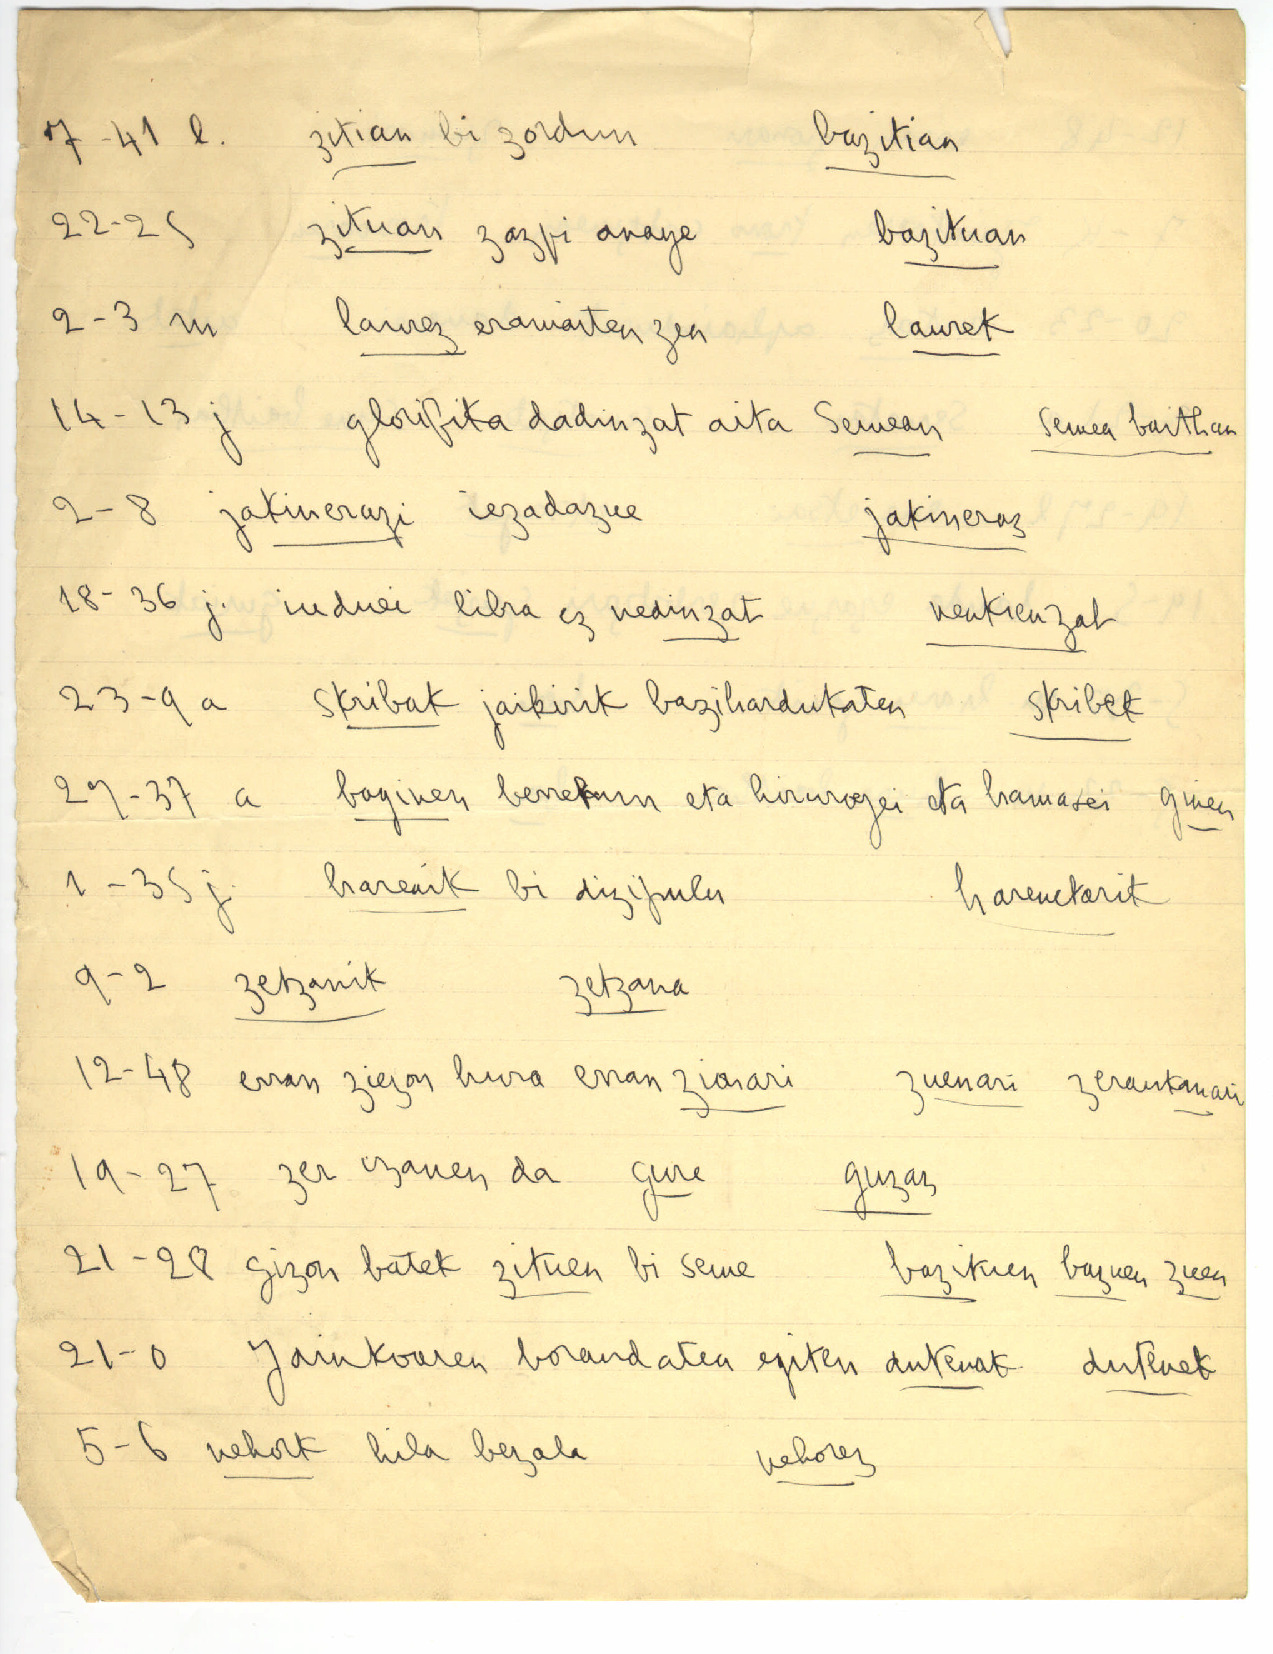 7-41 l. zitian bi zordun bazitian
22-25 zituan zazpi anaye bazituan
2-3 m laurez eramaiten zen laurek
14-13 j glorifika dadinzat aita Semean semea baithan
2-8 jakinerazi iezadazue jakineraz
18-36 j. iuduei libra ez nedinzat nenkienzat
23-9 a skribak jaikirik bazihardukaten skribek
27-37 a baginen berrehun eta hirurogei eta hamasei ginen
1-35 j. harenik bi dizipulu harenetarik
9-2 zetzanik zetzana
12-48 erran ziezon hura erran zionari zuenari zeraukanari
19-27 zer izanen da gure guzaz
21-28 gizon batek zituen bi seme bazituen bazuen zuen
21-0 Jainkoaren borondatea egiten dutenak dutenek
5-6 nehork hila bezala nehorez